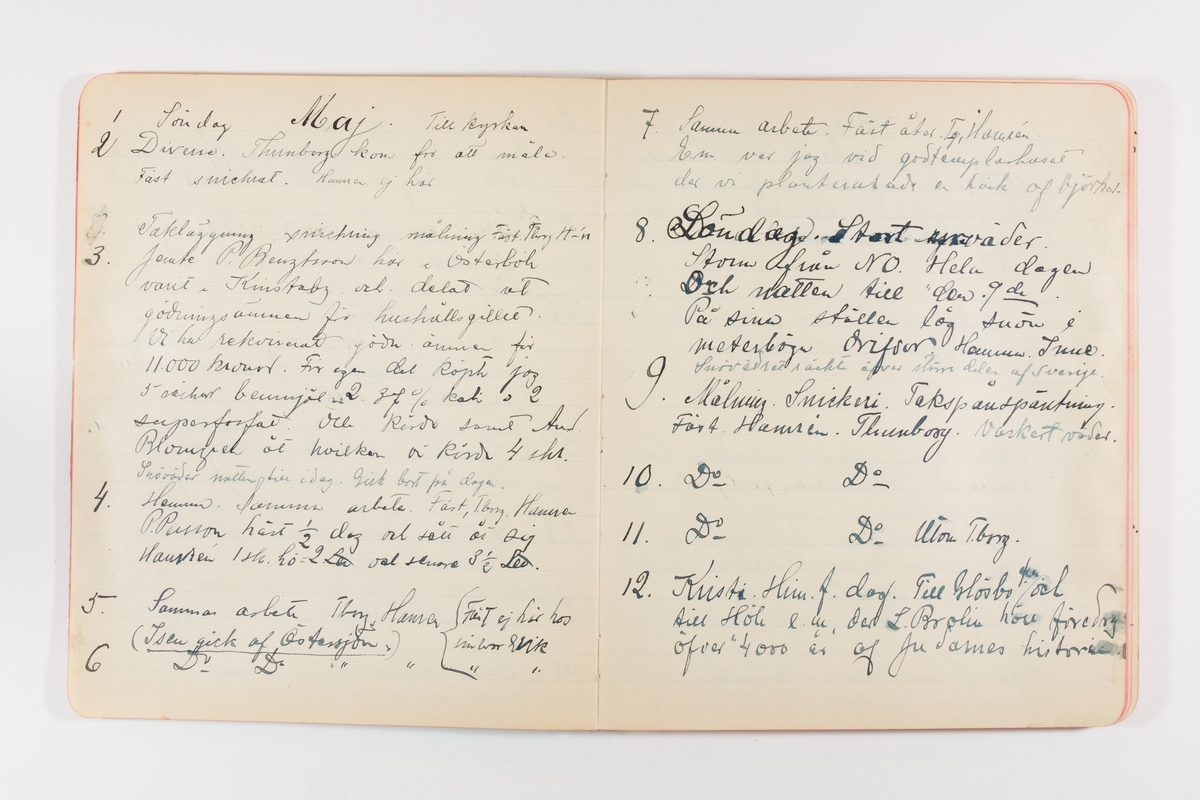 Maj.
1 Söndag Till kyrkan
2 Diverse. Thunborg kom för att måla.
Fäst snickrat. Hamrén ej här
Takläggning snickning målning Fäst. Tborg H-n
3. Jemte P. Bengtsson har i Österboh
varit i Kinstaby och delat ut
gödningsämnen för hushållsgillet.
Vi ha rekvirerat gödn. ämnen för
11.000 kronor. För egen del köpte jag
5 säckar benmjöl 2 kali o 2
superfosfat. Olle körde samt And.
Blomgren åt hvilken vi körde 4 skr.
Snöväder natten till idag. Gick bort på dagen.
4. Hemma. Samma arbete. Fäst, Tborg, Hamrén
P. Persson häst 1/2 dag och sått åt sig
Hamrén 1 sk. hö = 2 och senare 3 1/2
5. Samma arbete Tborg, Hamrén (Fäst ej här hos
(Isen gick af Östersjön.) Erik
6 Do Do " " " "
7. Samma arbete. Fäst åter. Tg, Hamrén.
Em. var jag vid godtemplarhuset
der vi planterade en häck af björkar.
8. Söndag. Stort väder.
Storm från NO. Hela dagen
Och natten till den 9de.
På sina ställen låg snön i
meterhöga drifvor. Hemma. Inne.
Snövädret räckte öfver större delen af Sverige.
9. Målning. Snickeri. Takspånspäntning.
Fäst. Hamrén. Thunborg. Vackert väder.
10. Do Do
11. Do Do Utom Tborg.
12. Kristi Him. f. dag. Till Mösbo och
till Höle e.m. der L. Brolin höll föredrag
öfver "4000 år af Judarnes historia".